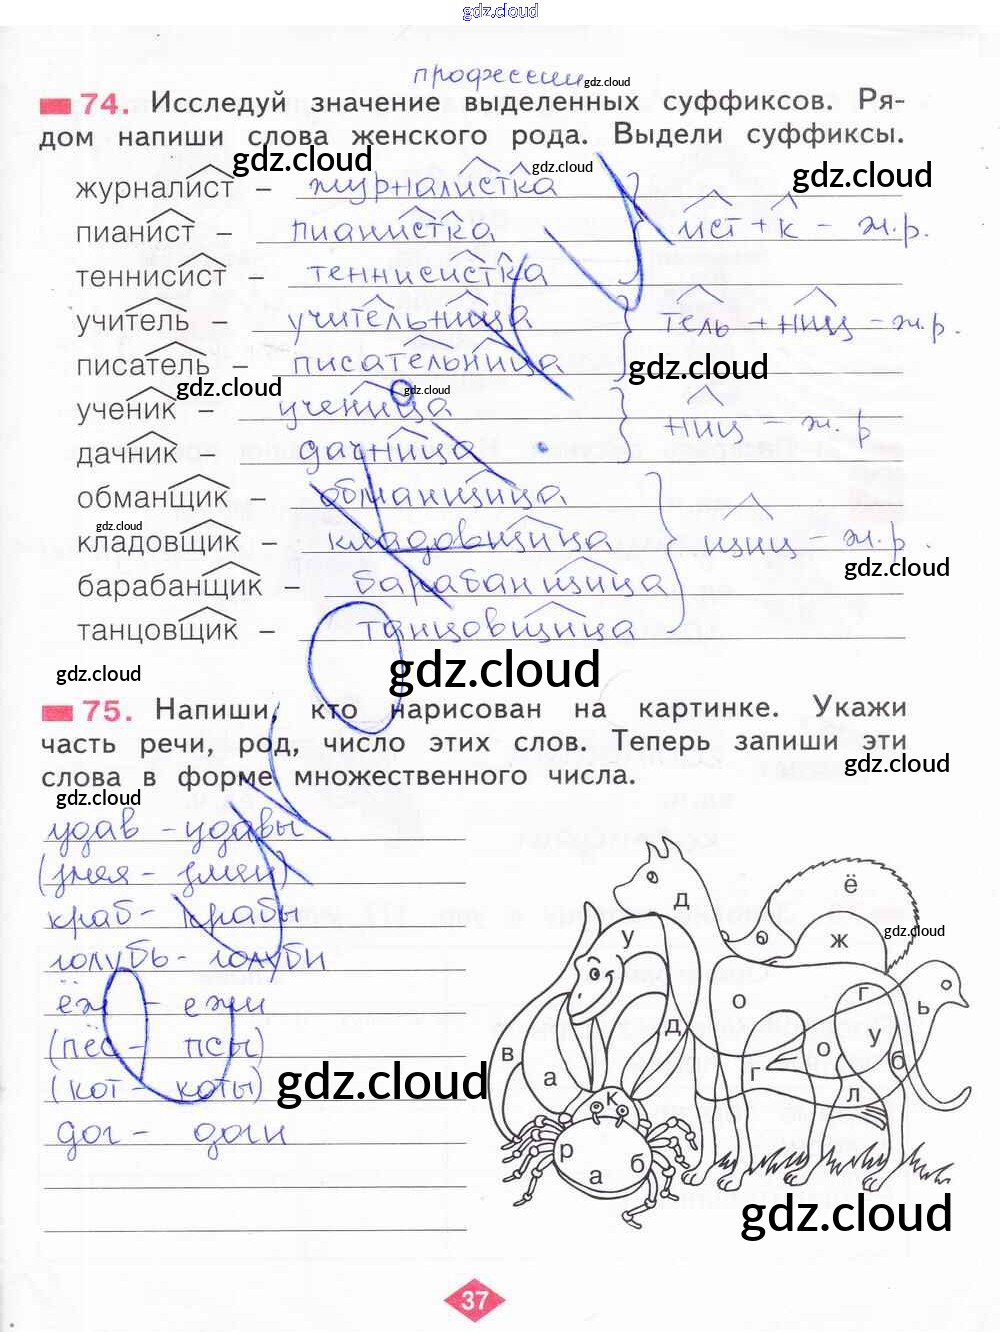 gdz.cloud
профессии gdz.cloud
74. Исследуй значение выделенных суффиксов. Ря-
дом напиши слова женского рода. Выдели суффиксы.
gdz.cloud gdz.cloud gdz.cloud
журналист – журналистка
пианист – пианистка ист + к – ж.р.
теннисист – теннисистка
учитель – учительница тель + ниц – ж.р.
писатель – писательница
gdz.cloud gdz.cloud gdz.cloud
ученик – ученица
дачник – дачница ниц – ж.р
обманщик – обманщица
gdz.cloud
кладовщик – кладовщица щиц – ж.р.
gdz.cloud
барабанщик – барабанщица
танцовщик – танцовщица
gdz.cloud gdz.cloud
75. Напиши, кто нарисован на картинке. Укажи
часть речи, род, число этих слов. Теперь запиши эти
слова в форме множественного числа.
gdz.cloud gdz.cloud
удав – удавы
(змея – змеи)
краб – крабы
голубь – голуби
ёж – ежи
(пёс – псы)
(кот – коты)
дог – доги
д ё
у ж
gdz.cloud
о г ь
в д о у б
а г л
к
р а б
gdz.cloud
gdz.cloud
37